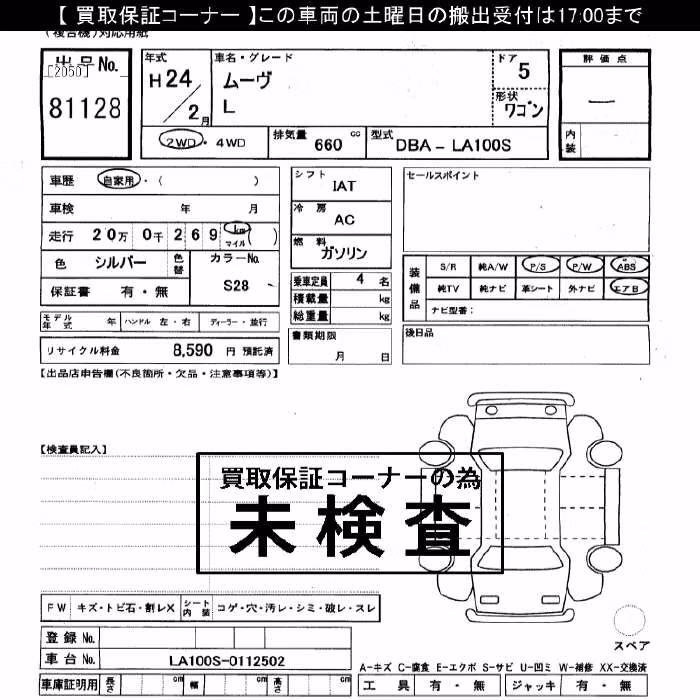 【 買取保証コーナー 】この車両の土曜日の搬出受付は17:00まで
(複合機)対応用紙
出品No.
[2050]
81128
年式
H24/2月
車名・グレード
ムーヴ
L
ドア
5
形状
ワゴン
評価点
―
内装
2WD・4WD
排気量 660 cc
型式 DBA-LA100S
車歴 自家用・( )
車検 年 月
走行 20万 0千 269 km マイル ( )
色 シルバー 色替 カラーNo. S28
保証書 有・無
シフト IAT
冷房 AC
燃料 ガソリン
乗車定員 4 名
積載量 kg
総重量 kg
セールスポイント
装備品
S/R 純A/W P/S P/W ABS
純TV 純ナビ 革シート 外ナビ エアB
ナビ型番:
モデル年式 年 ハンドル 左・右 ディーラー・並行
リサイクル料金 8,590 円 預託済
書類期限 月 日
後日品
【出品店申告欄(不良箇所・欠品・注意事項等)】
【検査員記入】
買取保証コーナーの為
未検査
FW キズ・トビ石・割レX シート内装 コゲ・穴・汚レ・シミ・破レ・スレ
スペア
登録No.
車台No. LA100S-0112502
A-キズ C-腐食 E-エクボ S-サビ U-凹ミ W-補修 XX-交換済
車庫証明用 長さ cm 幅 cm 高さ cm
工具 有・無 ジャッキ 有・無